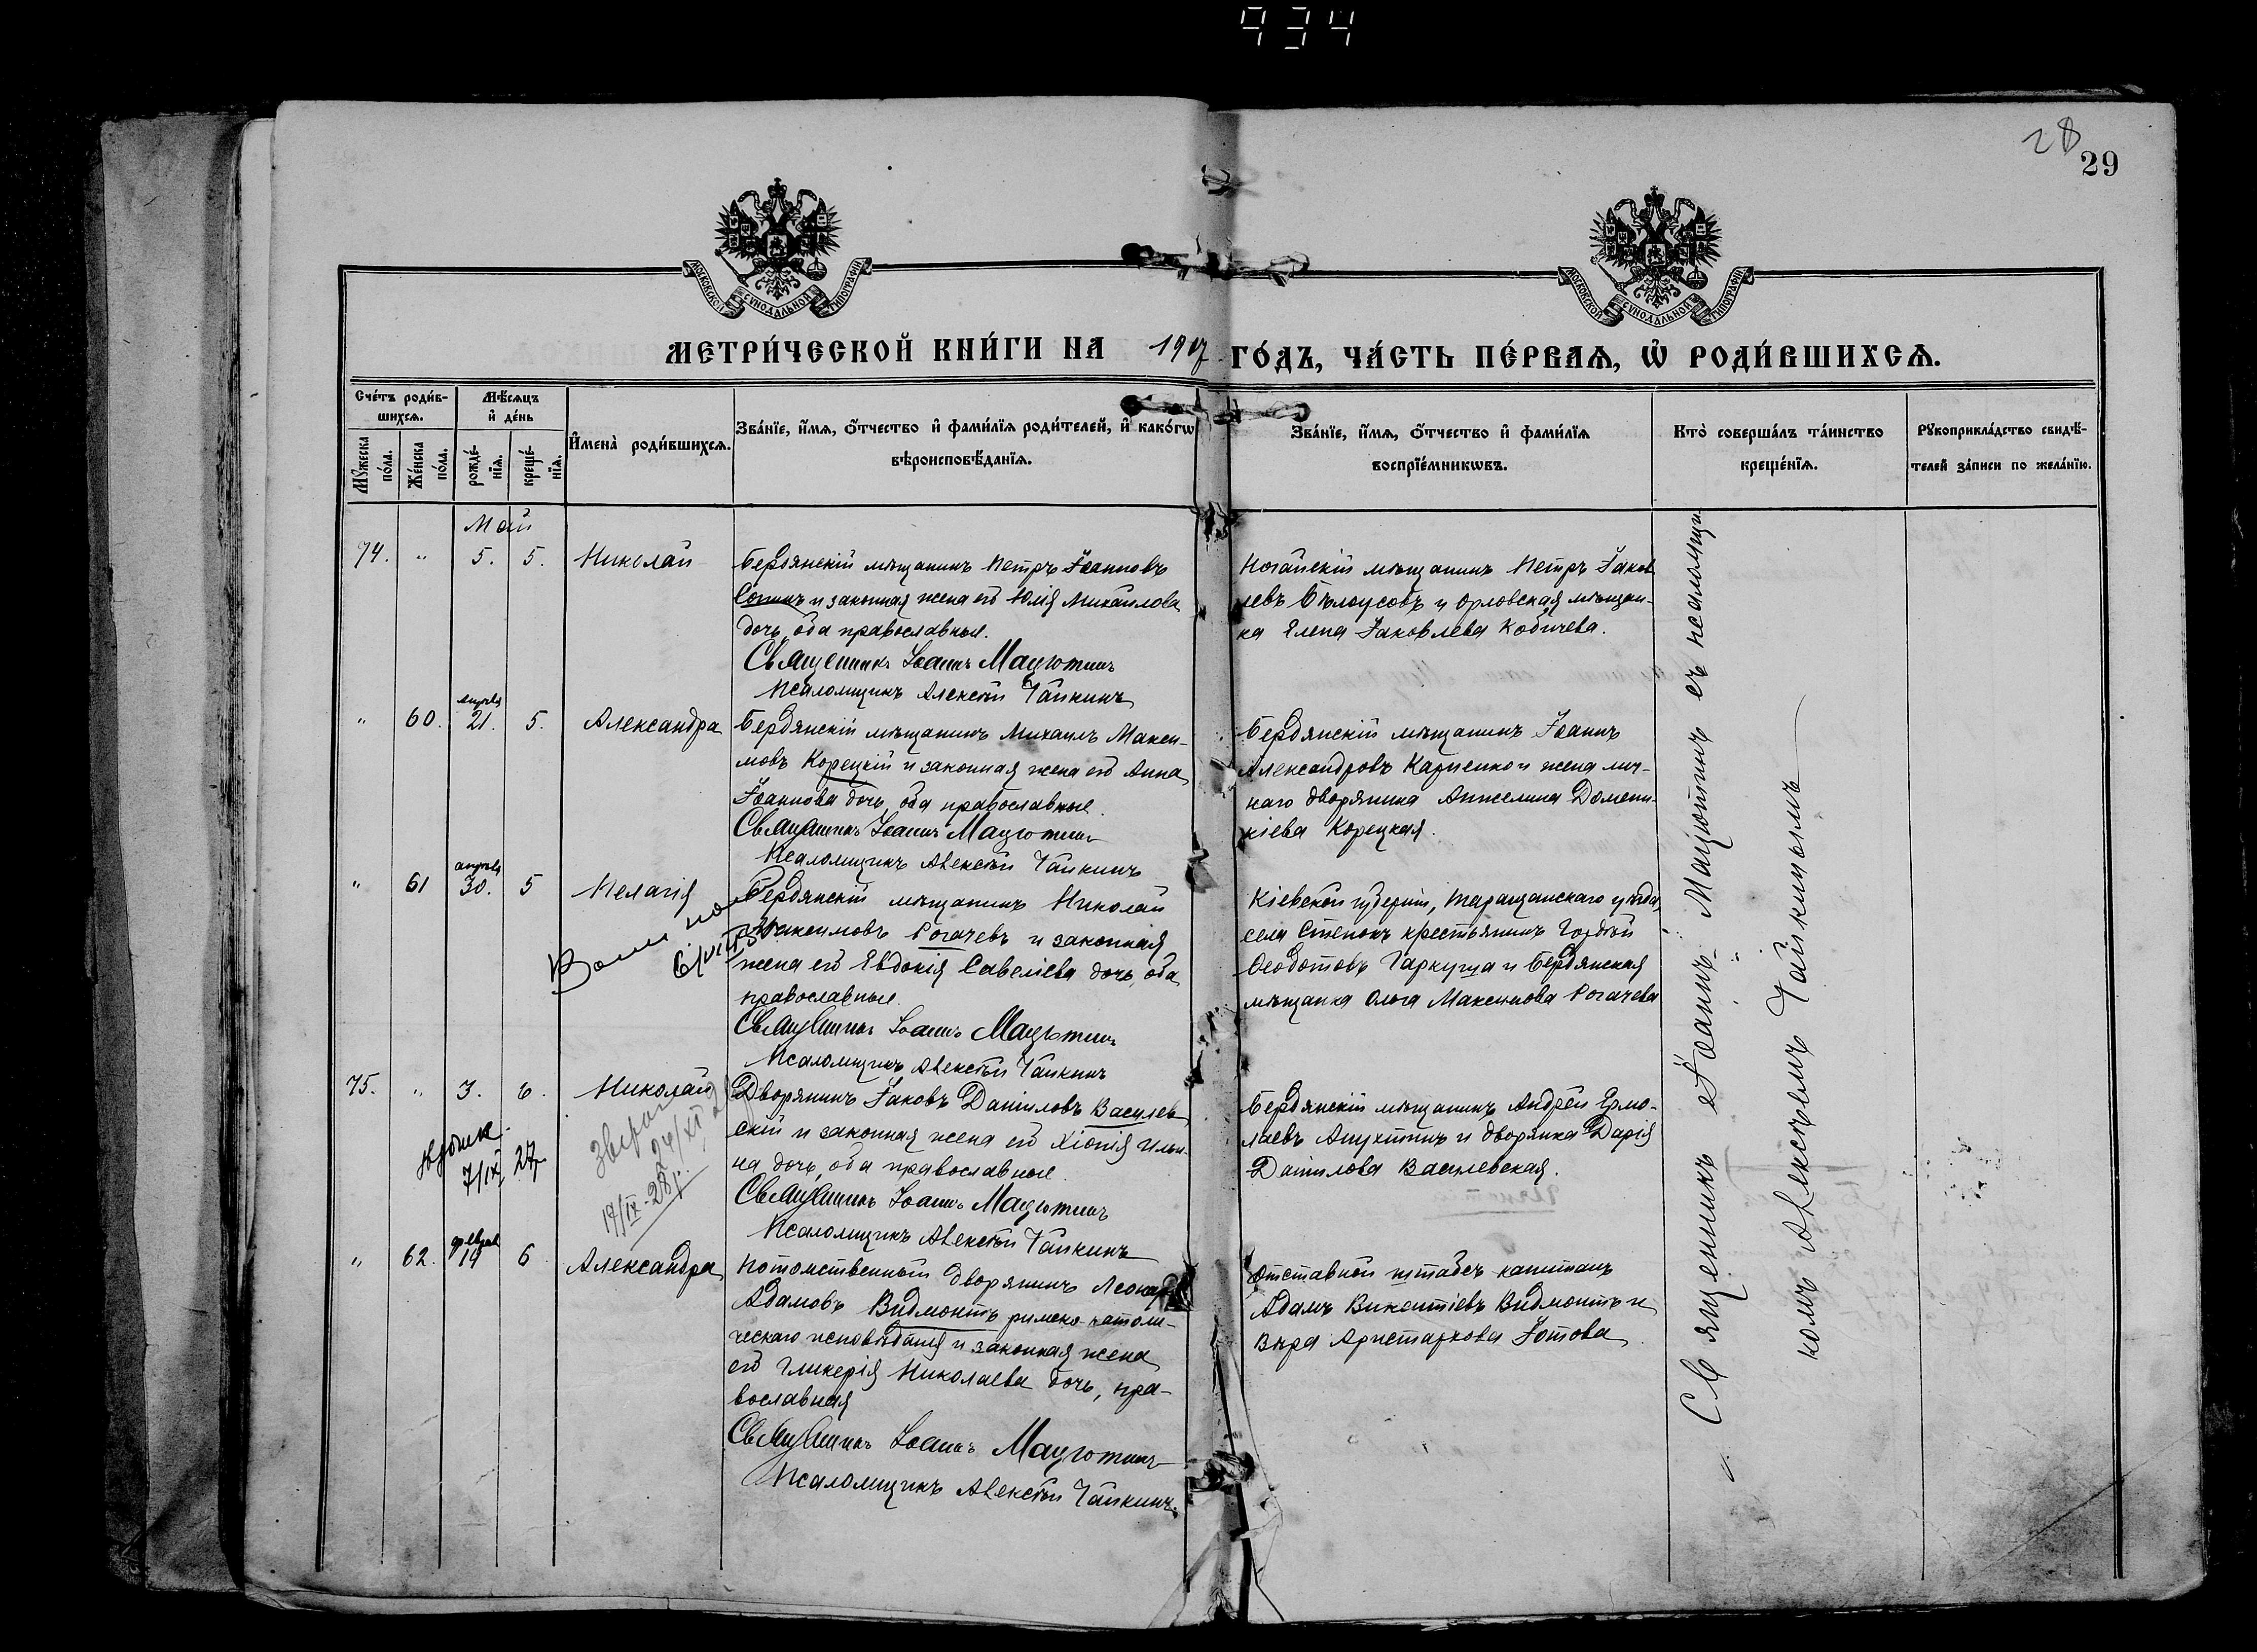 934
28
29
МОСКОВСКОЙ СѴНОДАЛЬНОЙ ТИПОГРАФІИ
МОСКОВСКОЙ СѴНОДАЛЬНОЙ ТИПОГРАФІИ
МЕТРИ́ЧЕСКОЙ КНИ́ГИ НА 1907 ГО́ДЪ, ЧА́СТЬ ПЕ́РВАѦ, Ѡ҆ РОДИ́ВШИХСѦ.
Сче́тъ роди́в-
шихсѧ.
Мꙋ́жеска по́ла.
Же́нска по́ла.
Мѣ́сѧцъ и҆ де́нь
рожде́-нїѧ.
креще́-нїѧ.
И҆мена̀ роди́вшихсѧ.
Зва́нїе, и҆́мѧ, ѻ҆́тчество и҆ фами́лїѧ роди́телей, и҆ како́гѡ
вѣроисповѣ́данїѧ.
Зва́нїе, и҆́мѧ, ѻ҆́тчество и҆ фами́лїѧ
воспрїе́мникѡвъ.
Кто̀ соверша́лъ та́инство
креще́нїѧ.
Рꙋкоприкла́дство свидѣ́-
телей за́писи по жела́нїю.
Май
74. " 5. 5. Николай
Бердянскій мѣщанинъ Петръ Іоанновъ
и законная жена его Юлія Михаилова
дочь, оба православные.
Священникъ Іоаннъ Мацютинъ
Псаломщикъ Алексѣй Чайкинъ
Ногайскій мѣщанинъ Петръ Іаков
левъ Бѣлоусовъ и Орловская мѣщан-
ка Елена Іаковлева Кобичева.
" 60. апрѣля 21. 5. Александра
Бердянскій мѣщанинъ Михаилъ Макси-
мовъ Корецкій и законная жена его Анна
Іоаннова дочь, оба православные.
Священникъ Іоаннъ Мацютинъ
Псаломщикъ Алексѣй Чайкинъ
Бердянскій мѣщанинъ Іоаннъ
Александровъ Карпенко и жена лич-
наго дворянина Анжелина Домени-
кіева Корецкая.
" 61 апрѣля 30. 5 Пелагія
Бердянскій мѣщанинъ Николай
Максимовъ Рогачевъ и законная
жена его Евдокія Савеліева дочь, оба
православные.
Священникъ Іоаннъ Мацютинъ
Псаломщикъ Алексѣй Чайкинъ
Кіевской губерніи, Таращанскаго уѣзда,
села Степокъ крестьянинъ Гордѣй
Ѳеодотовъ Гаркуша и Бердянская
мѣщанка Ольга Максимова Рогачева
75. " 3. 6. Николай
7/IX 27
24/XI
19/IX-28г.
Дворянинъ Іаковъ Даніиловъ Василев
скій и законная жена его Хіонія Ильи-
на дочь, оба православные.
Священникъ Іоаннъ Мацютинъ
Псаломщикъ Алексѣй Чайкинъ
Бердянскій мѣщанинъ Андрей Ермо-
лаевъ Анухтинъ и дворянка Дарія
Даніилова Василевская.
" 62. феврал 19 6 Александра
Потомственный дворянинъ
Адамовъ Видмонтъ римско-католи-
ческаго исповѣданія и законная жена
его Гликерія Николаева дочь, пра-
вославная
Священникъ Іоаннъ Мацютинъ
Псаломщикъ Алексѣй Чайкинъ.
Отставной штабсъ капитанъ
Адамъ Викентіевъ Видмонтъ и
Вѣра Аристархова Зотова
Священникъ Іоаннъ Мацютинъ съ псаломщи-
комъ Алексѣемъ Чайкинымъ